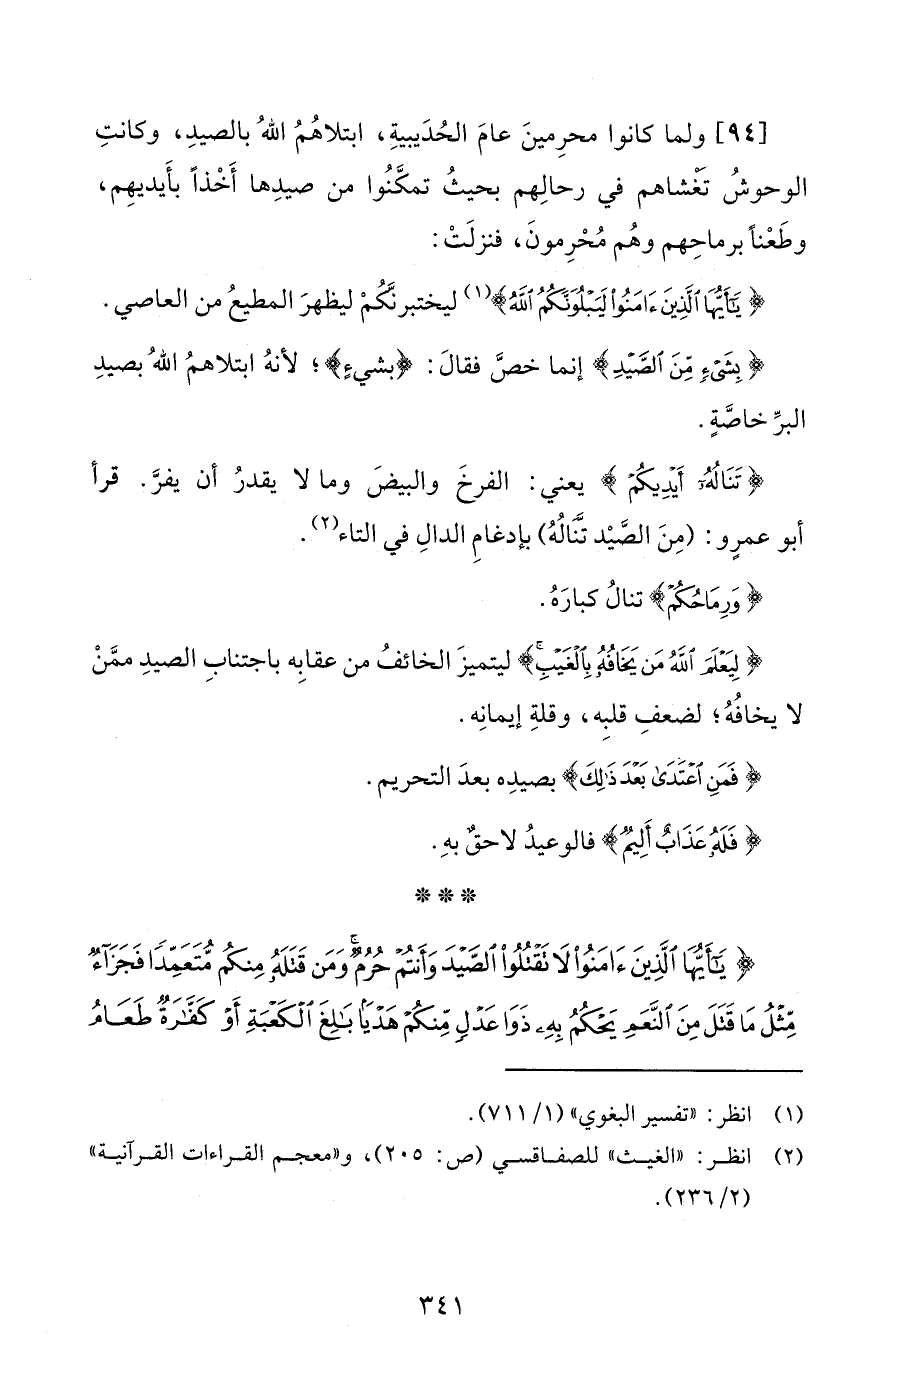 [٩٤] ولما كانوا محرِمينَ عامَ الحُدَيبيةِ، ابتلاهُمُ اللهُ بالصيدِ، وكانتِ
الوحوشُ تَغْشاهم في رحالِهم بحيثُ تمكَّنُوا من صيدِها أَخْذاً بأَيديهِم،
وطَعْناً برماحِهم وهُم مُحْرِمونَ، فنزلَتْ:
﴿ يَٰٓأَيُّهَا ٱلَّذِينَ ءَامَنُوا۟ لَيَبْلُوَنَّكُمُ ٱللَّهُ﴾(١) ليختبرنَّكُمْ ليظهرَ المطيعُ من العاصي.
﴿ بِشَىْءٍ مِّنَ ٱلصَّيْدِ﴾ إنما خصَّ فقالَ: ﴿بشيءٍ﴾؛ لأنهُ ابتلاهمُ اللهُ بصيدِ
البرِّ خاصَّةٍ.
﴿ تَنَالُهُۥٓ أَيْدِيكُمْ ﴾ يعني: الفرخَ والبيضَ وما لا يقدرُ أن يفرَّ. قرأ
أبو عمرٍو: (مِنَ الصَّيْد تَّنَالُهُ) بإدغامِ الدالِ في التاء(٢).
﴿ وَرِمَاحُكُمْ﴾ تنالُ كبارَهُ.
﴿ لِيَعْلَمَ ٱللَّهُ مَن يَخَافُهُۥ بِٱلْغَيْبِ ۚ﴾ ليتميزَ الخائفُ من عقابِه باجتنابِ الصيدِ ممَّنْ
لا يخافُهُ؛ لضعفِ قلبِه، وقلةِ إيمانِه.
﴿ فَمَنِ ٱعْتَدَىٰ بَعْدَ ذَٰلِكَ﴾ بصيدِه بعدَ التحريم.
﴿ فَلَهُۥ عَذَابٌ أَلِيمٌ﴾ فالوعيدُ لاحقٌ بهِ.
* * *
﴿ يَٰٓأَيُّهَا ٱلَّذِينَ ءَامَنُوا۟ لَا تَقْتُلُوا۟ ٱلصَّيْدَ وَأَنتُمْ حُرُمٌ ۚ وَمَن قَتَلَهُۥ مِنكُم مُّتَعَمِّدًا فَجَزَآءٌ
مِّثْلُ مَا قَتَلَ مِنَ ٱلنَّعَمِ يَحْكُمُ بِهِۦ ذَوَا عَدْلٍ مِّنكُمْ هَدْيًۢا بَٰلِغَ ٱلْكَعْبَةِ أَوْ كَفَّٰرَةٌ طَعَامُ
(١) انظر: «تفسير البغوي» (١/ ٧١١).
(٢) انظر: «الغيث» للصفاقسي (ص: ٢٠٥)، و«معجم القراءات القرآنية»
(٢/ ٢٣٦).
٣٤١